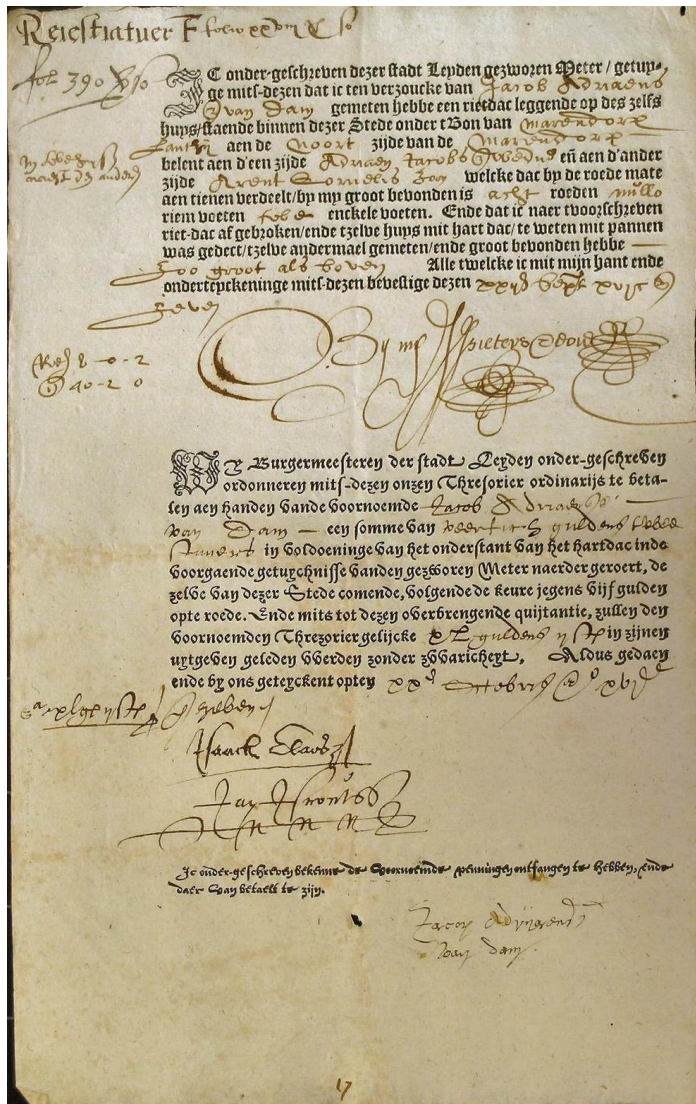 Reiestratuer F folio
fol 390
IC onder-geschreven dezer stadt Leyden gezworen Meter / getuy-
ge mits-dezen dat ic ten verzoucke van Jacob Adriaens
van Dam gemeten hebbe een rietdac leggende op des zelfs
huys/staende binnen dezer Stede onder tBon van Marendorp
Lantz aen de Noort zijde van de Marendorp
belent aen d'een zijde Adriaen Jacobs eñ aen d'ander
zijde Arent Cornelis Zoon welcke dat by de roede mate
aen tienen verdeelt/by my groot bevonden is acht roeden nullo
riem voeten enckele voeten. Ende dat ic naer tvoorschreven
riet-dac af gebroken/ende tzelve huys mit hart dac/te weten mit pannen
was gedect/tzelve andermael gemeten/ende groot bevonden hebbe
Zoo groot als boven Alle twelcke ic mit mijn hant ende
onderteyckeninge mits-dezen bevestige dezen Sept
Zeven
By my Pieters
8-0-2
40-2 0
WY Burgermeesteren der stadt Leyden onder-geschreven
ordonneren mits-dezen onzen Thresorier ordinarijs te beta-
len aen handen vande voornoemde Jacob Adriaens
van Dam een somme van veertich guldens twee
stuvers in voldoeninge van het onderstant van het hartdac inde
voorgaende getuychnisse vanden gezworen Meter naerder geroert, de
zelve van dezer Stede comende, volgende de keure jegens vijf gulden
opte roede. Ende mits tot dezen overbrengende quijtantie, zullen den
voornoemden Threzorier gelijcke xl guldens ij st in zijnen
uytgeven geleden vverden zonder zvvaricheyt. Aldus gedaen
ende by ons geteyckent opten xx
zeven
Isaack Claes
Jan
Ic onder-geschreven bekenne de voornoemde penningen ontfangen te hebben, ende
daer van betaelt te zijn.
Jacop
van dam
17